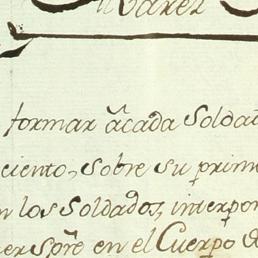 formar âcada Soldad
ciento, sobre su prim
n los Soldados, interpon
er spre en el Cuerpo d